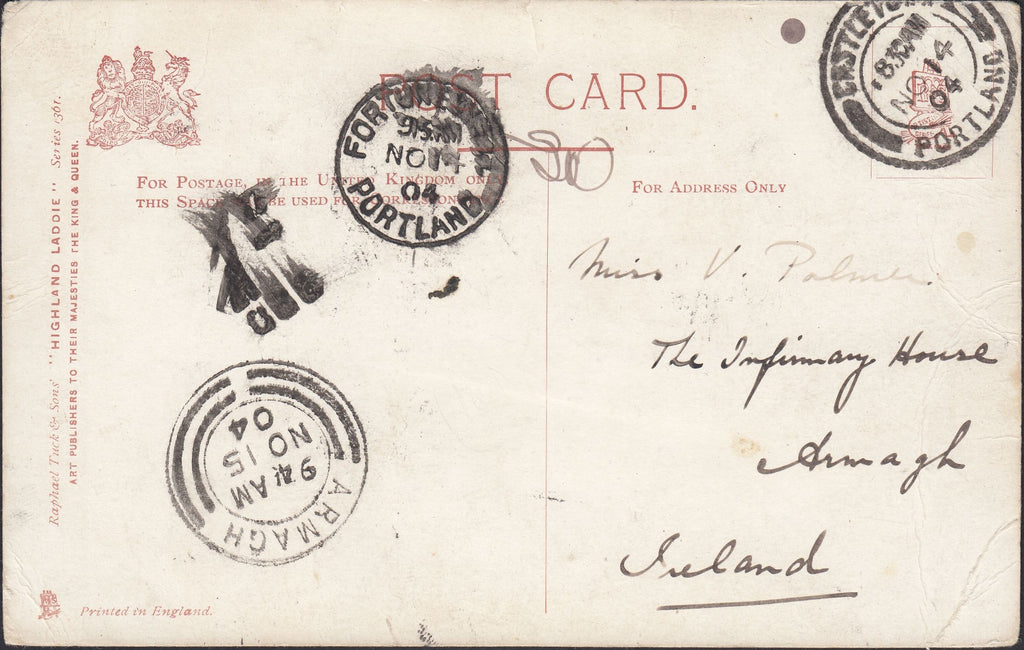 POST CARD.
For Postage, in the United Kingdom only
this Space be used for
For Address Only
Raphael Tuck & Sons' "HIGHLAND LADDIE" Series 1361.
ART PUBLISHERS TO THEIR MAJESTIES THE KING & QUEEN.
FORTUNESWELL
915AM
NO 14
04
PORTLAND
CASTLETOWN
830AM
NO 14
04
PORTLAND
Miss V. Palmer
The Infirmary House
Armagh
Ireland
ARMAGH
AM
NO 15
04
Printed in England.